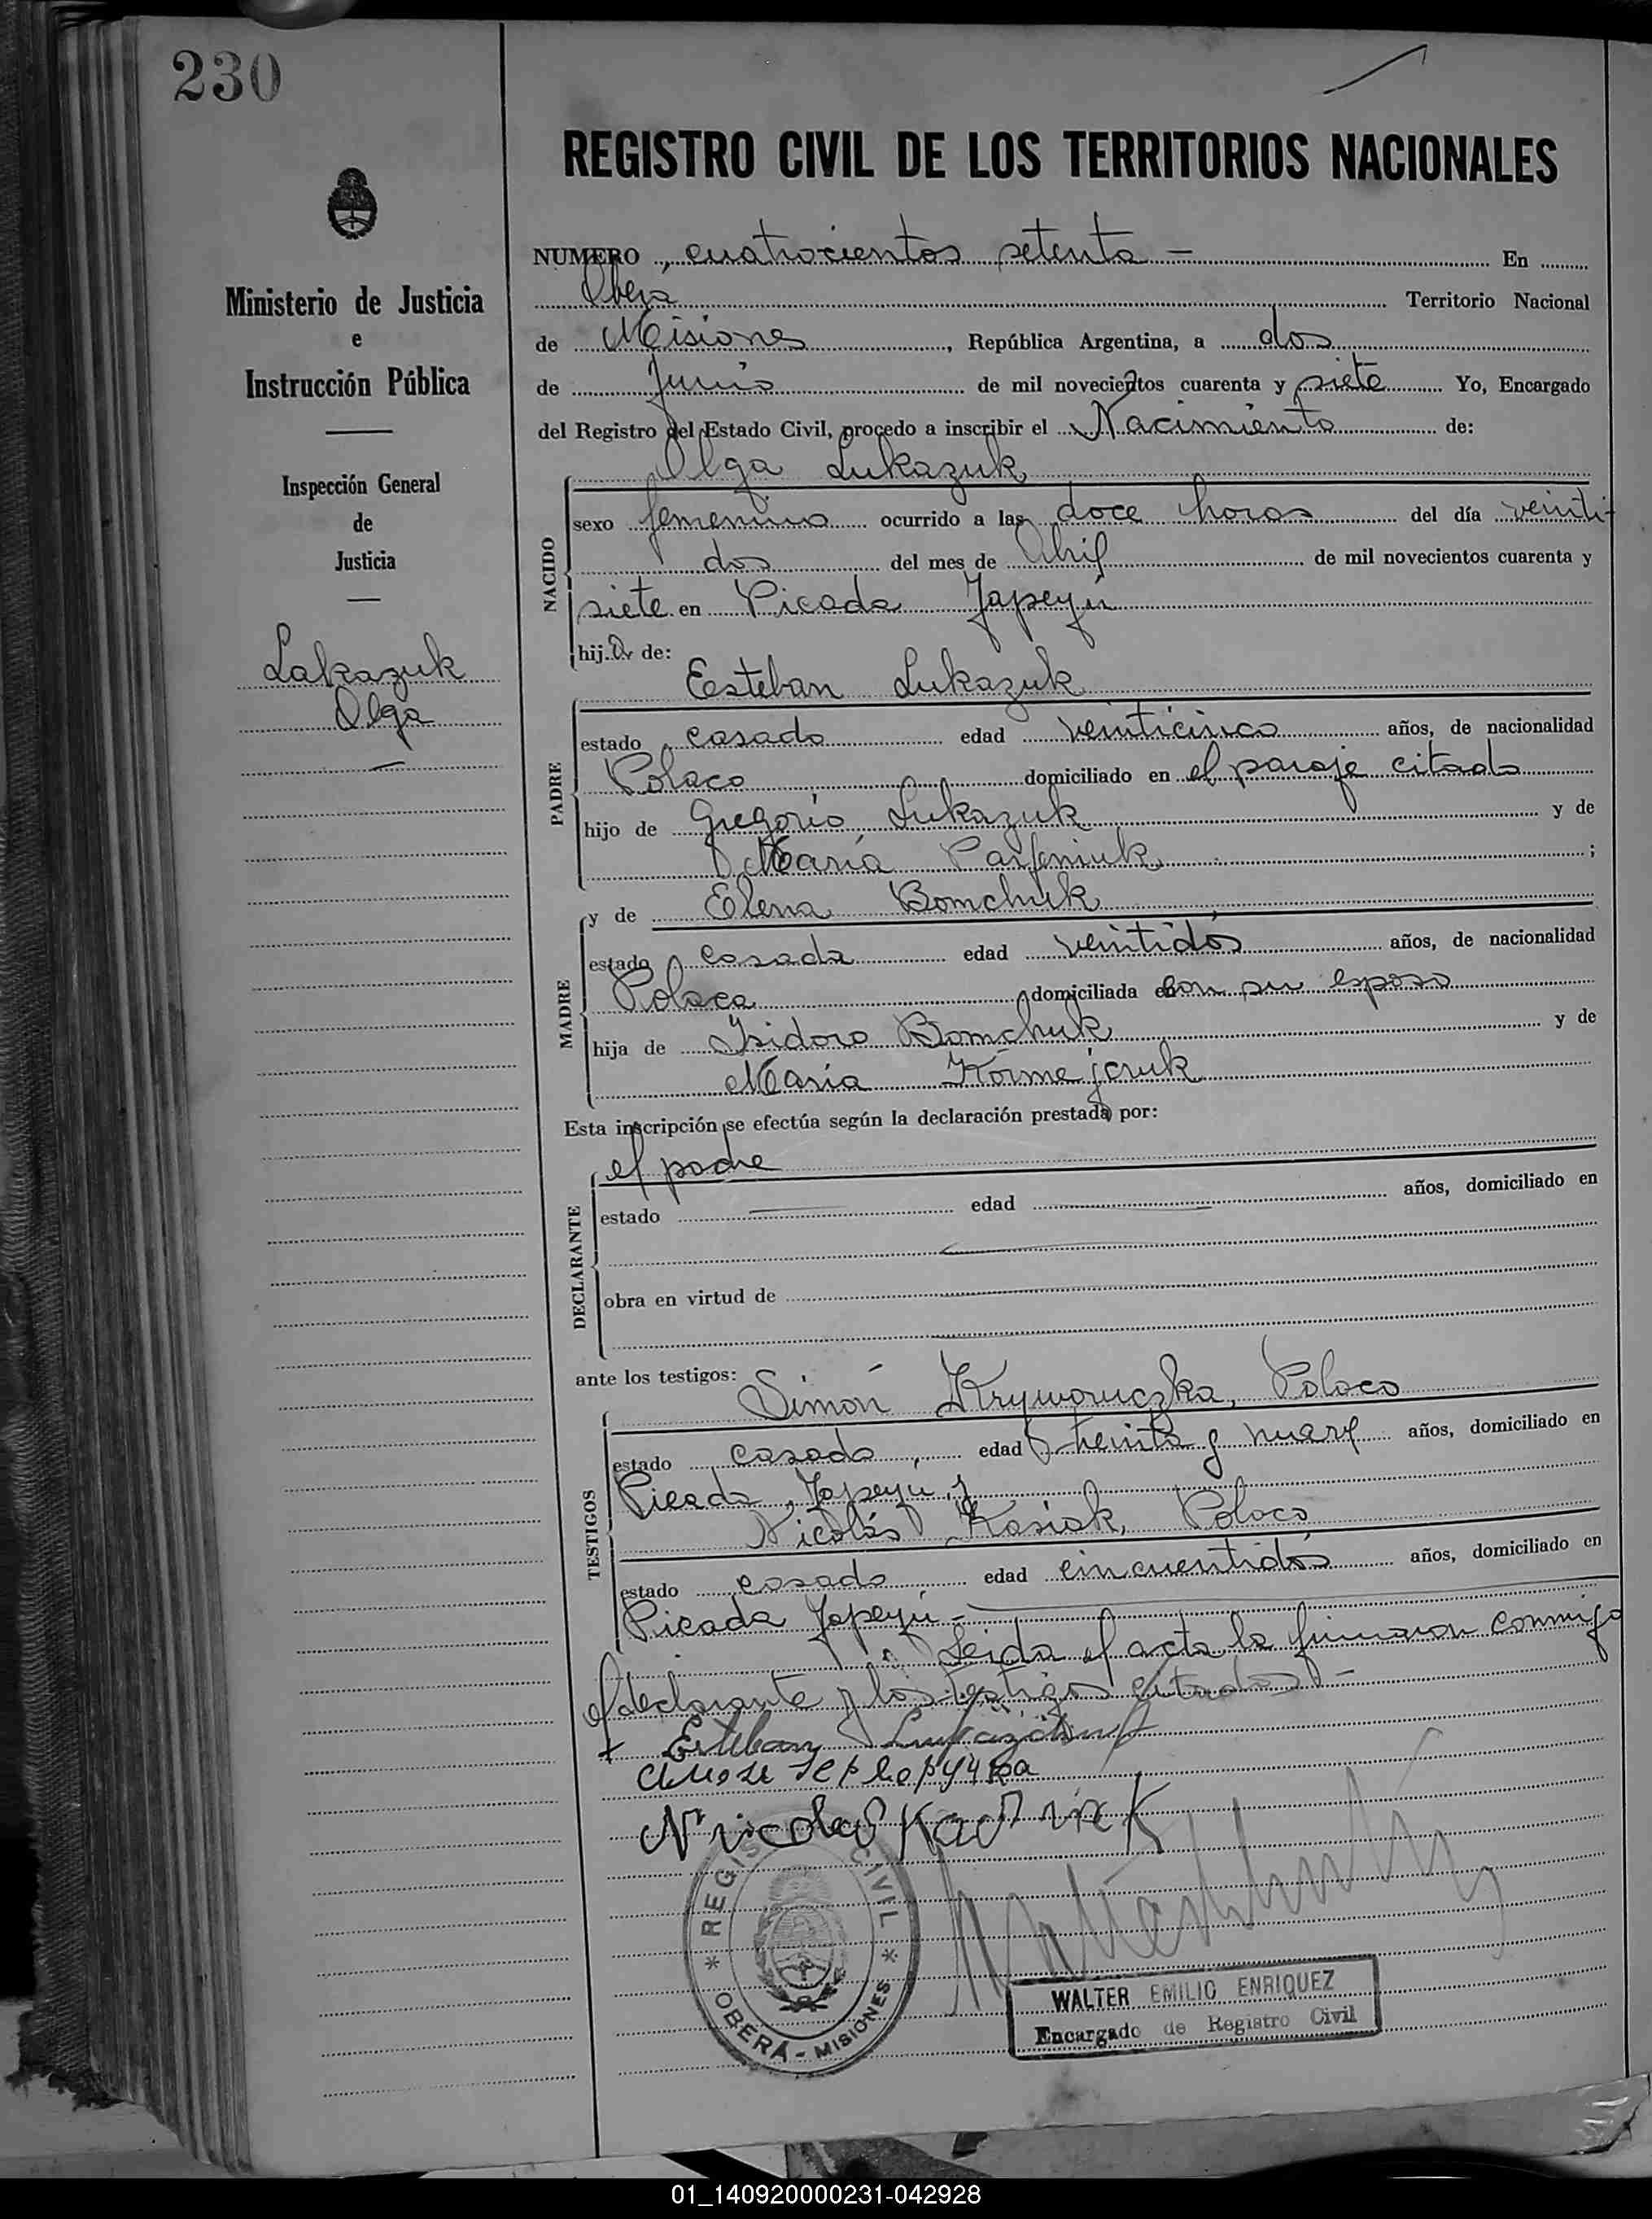 230
REGISTRO CIVIL DE LOS TERRITORIOS NACIONALES
Ministerio de Justicia
e
Instrucción Pública
Inspección General
de
Justicia
Lakazuk
Olga
NUMERO, cuatrocientos setenta - En
Obera Territorio Nacional
de Misiones, República Argentina, a dos
de Junio de mil novecientos cuarenta y siete Yo, Encargado
del Registro del Estado Civil, procedo a inscribir el Nacimiento de:
Olga Lukazuk
NACIDO
sexo femenino ocurrido a las doce horas del día veinti-
dos del mes de Abril de mil novecientos cuarenta y
siete en Picada Yapeyú
hija de:
Esteban Lukazuk
PADRE
estado casado edad veinticinco años, de nacionalidad
Polaco domiciliado en el paraje citado
hijo de Gregorio Lukazuk y de
María Parfeniuk;
y de Elena Bomchuk
MADRE
estado casada edad veintidós años, de nacionalidad
Polaca domiciliada en con su esposo
hija de Isidoro Bomchuk y de
María
Esta inscripción se efectúa según la declaración prestada por:
el padre
DECLARANTE
estado edad años, domiciliado en
obra en virtud de
ante los testigos:
Simón Kryworuczka, Polaco
TESTIGOS
estado casado, edad treinta y nueve años, domiciliado en
Picada Yapeyú y
Nicolás Kasiak, Polaco
estado casado edad cincuentidós años, domiciliado en
Picada Yapeyú -
Leida el acta la firmaron conmigo
el declarante y los testigos citados -
Esteban
Nicolas
REGISTRO CIVIL
* OBERÁ - MISIONES *
WALTER EMILIO ENRIQUEZ
Encargado de Registro Civil
01_140920000231-042928